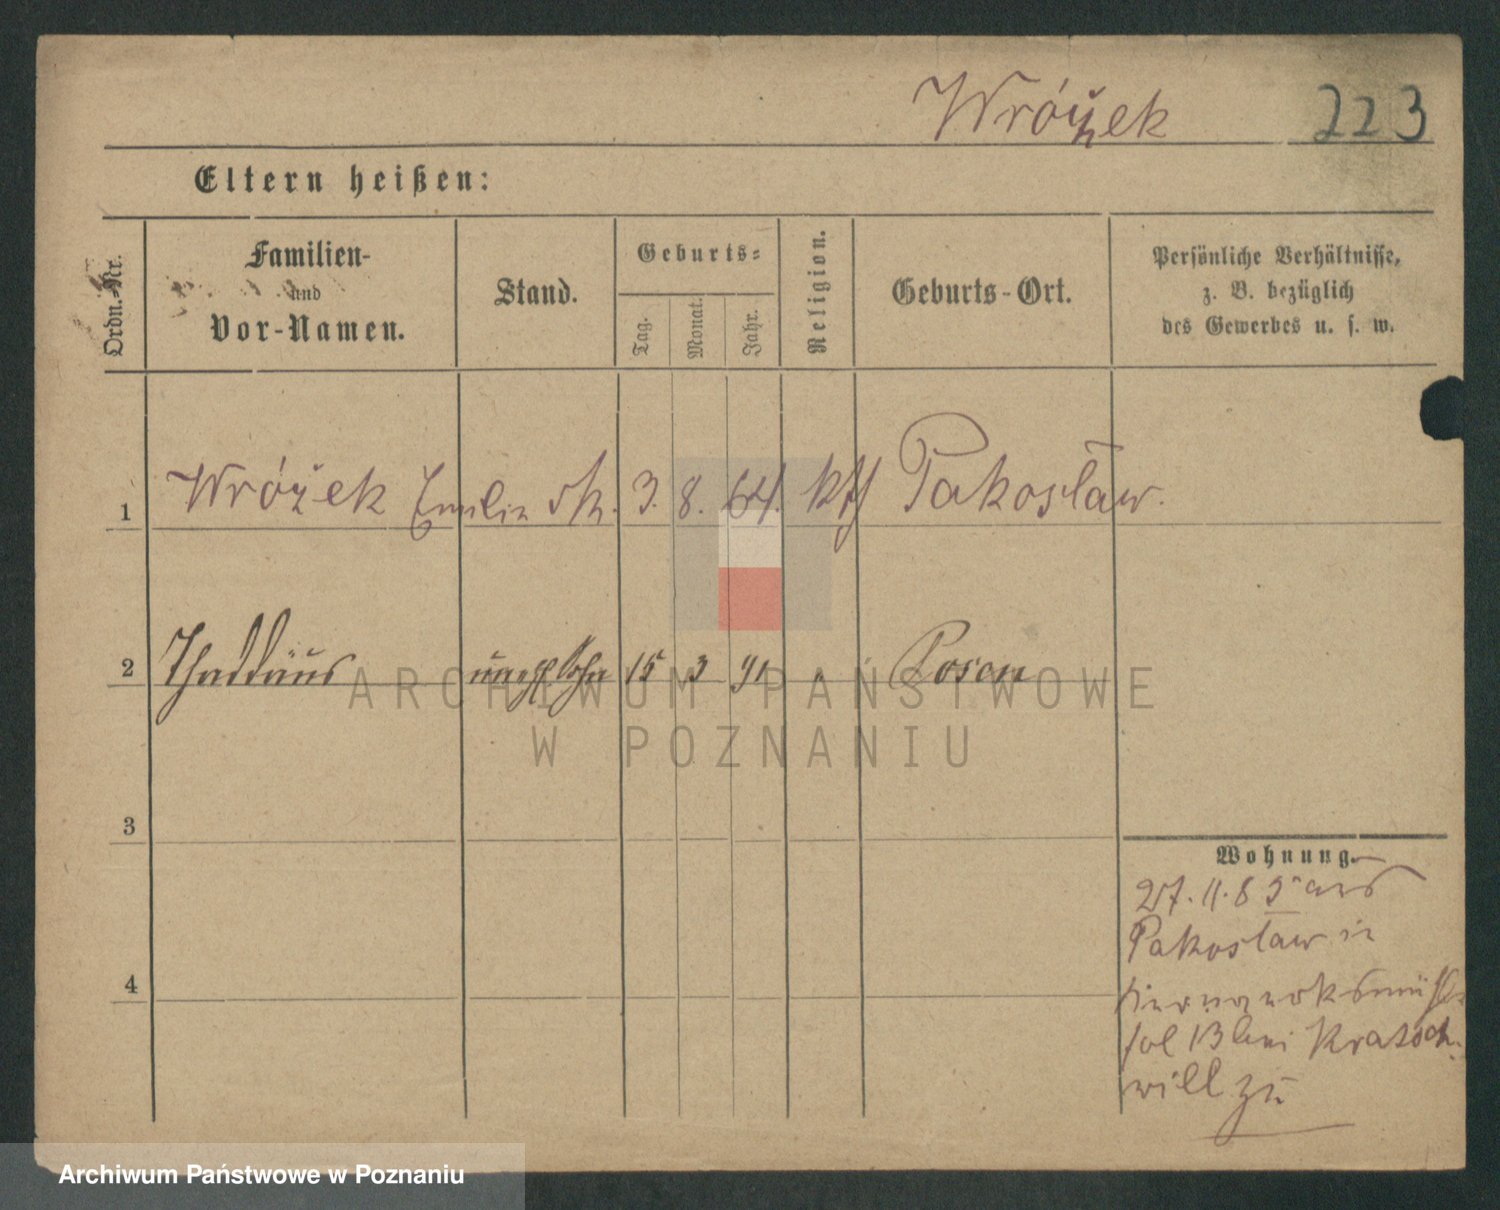 Wróžek 223
Eltern heißen:
Ordn.-Nr.
Familien-
und
Vor-Namen.
Stand.
Geburts-
Tag.
Monat.
Jahr.
Religion.
Geburts-Ort.
Persönliche Verhältnisse,
z. B. bezüglich
des Gewerbes u. s. w.
1 Wróžek Emilie 3. 8. 64. kth Pakosław.
2 Thaddäus unehl Sohn 15 3 91 Posen
3
4
Wohnung.
27.11.85 aus
Pakosław in
fol 13 bei Kratoch
will zu
ARCHIWUM PAŃSTWOWE
W POZNANIU
Archiwum Państwowe w Poznaniu